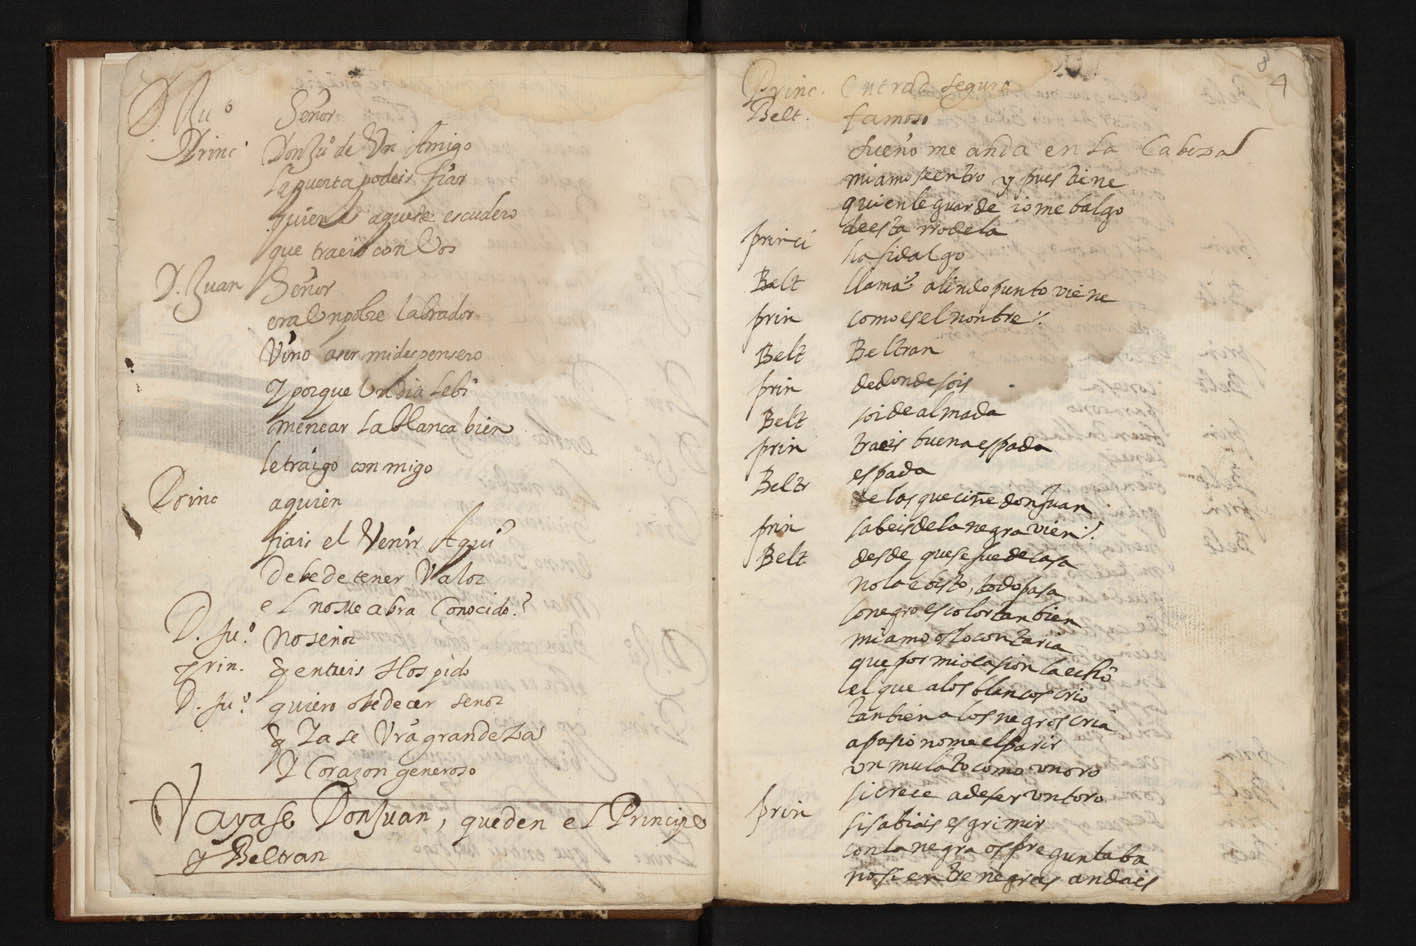 D. Ju.º Señor
Princ. Don Juº de Un Amigo
la quenta podeis fiar
quien es aquese escudero
que traeis con Vos
D. Juan Señor
era Un pobre labrador
Vino a ser mi despensero
Y porque Un dia le bi
menear la blanca bien
le traigo con migo
Princ a quien
fiais el Venir Aqui
debe de tener Valor
el no me abra Conocido?
D. Ju.º No señor
prin. q entreis Hos pido
D. Ju.º quiero obedecer señor
q Ya se Vrã grandeza
Y Corazon generoso
Vayase Don Juan, queden el Principe
y Beltran
8
4
Princ. Entrad seguro
Belt. famoso
sueño me anda en la Cabeza
mi amo se entro y pues tiene
quien le guarde io me balgo
de esta rrodela
princi ha fidalgo
Belt llama? a lindo punto viene
prin como es el nonbre?
Belt Beltran
prin de donde sois
Belt soi de almada
prin traeis buena espada
Beltr espada
de las que ciñe don Juan
prin sabeis de la negra vien?
Belt desde que se fue de casa
no la e bisto, todo pasa
lo negro es color tan bien
mi amo os lo contaria
que por mi ocasion la echo
el que a los blancos crio
tanbien a los negros cria
a pasio no me el parir
vn mulato como vn oro
si crece a de ser vn toro
prin si sabiais esgrimir
con la negra os preguntaba
no si entre negras andais